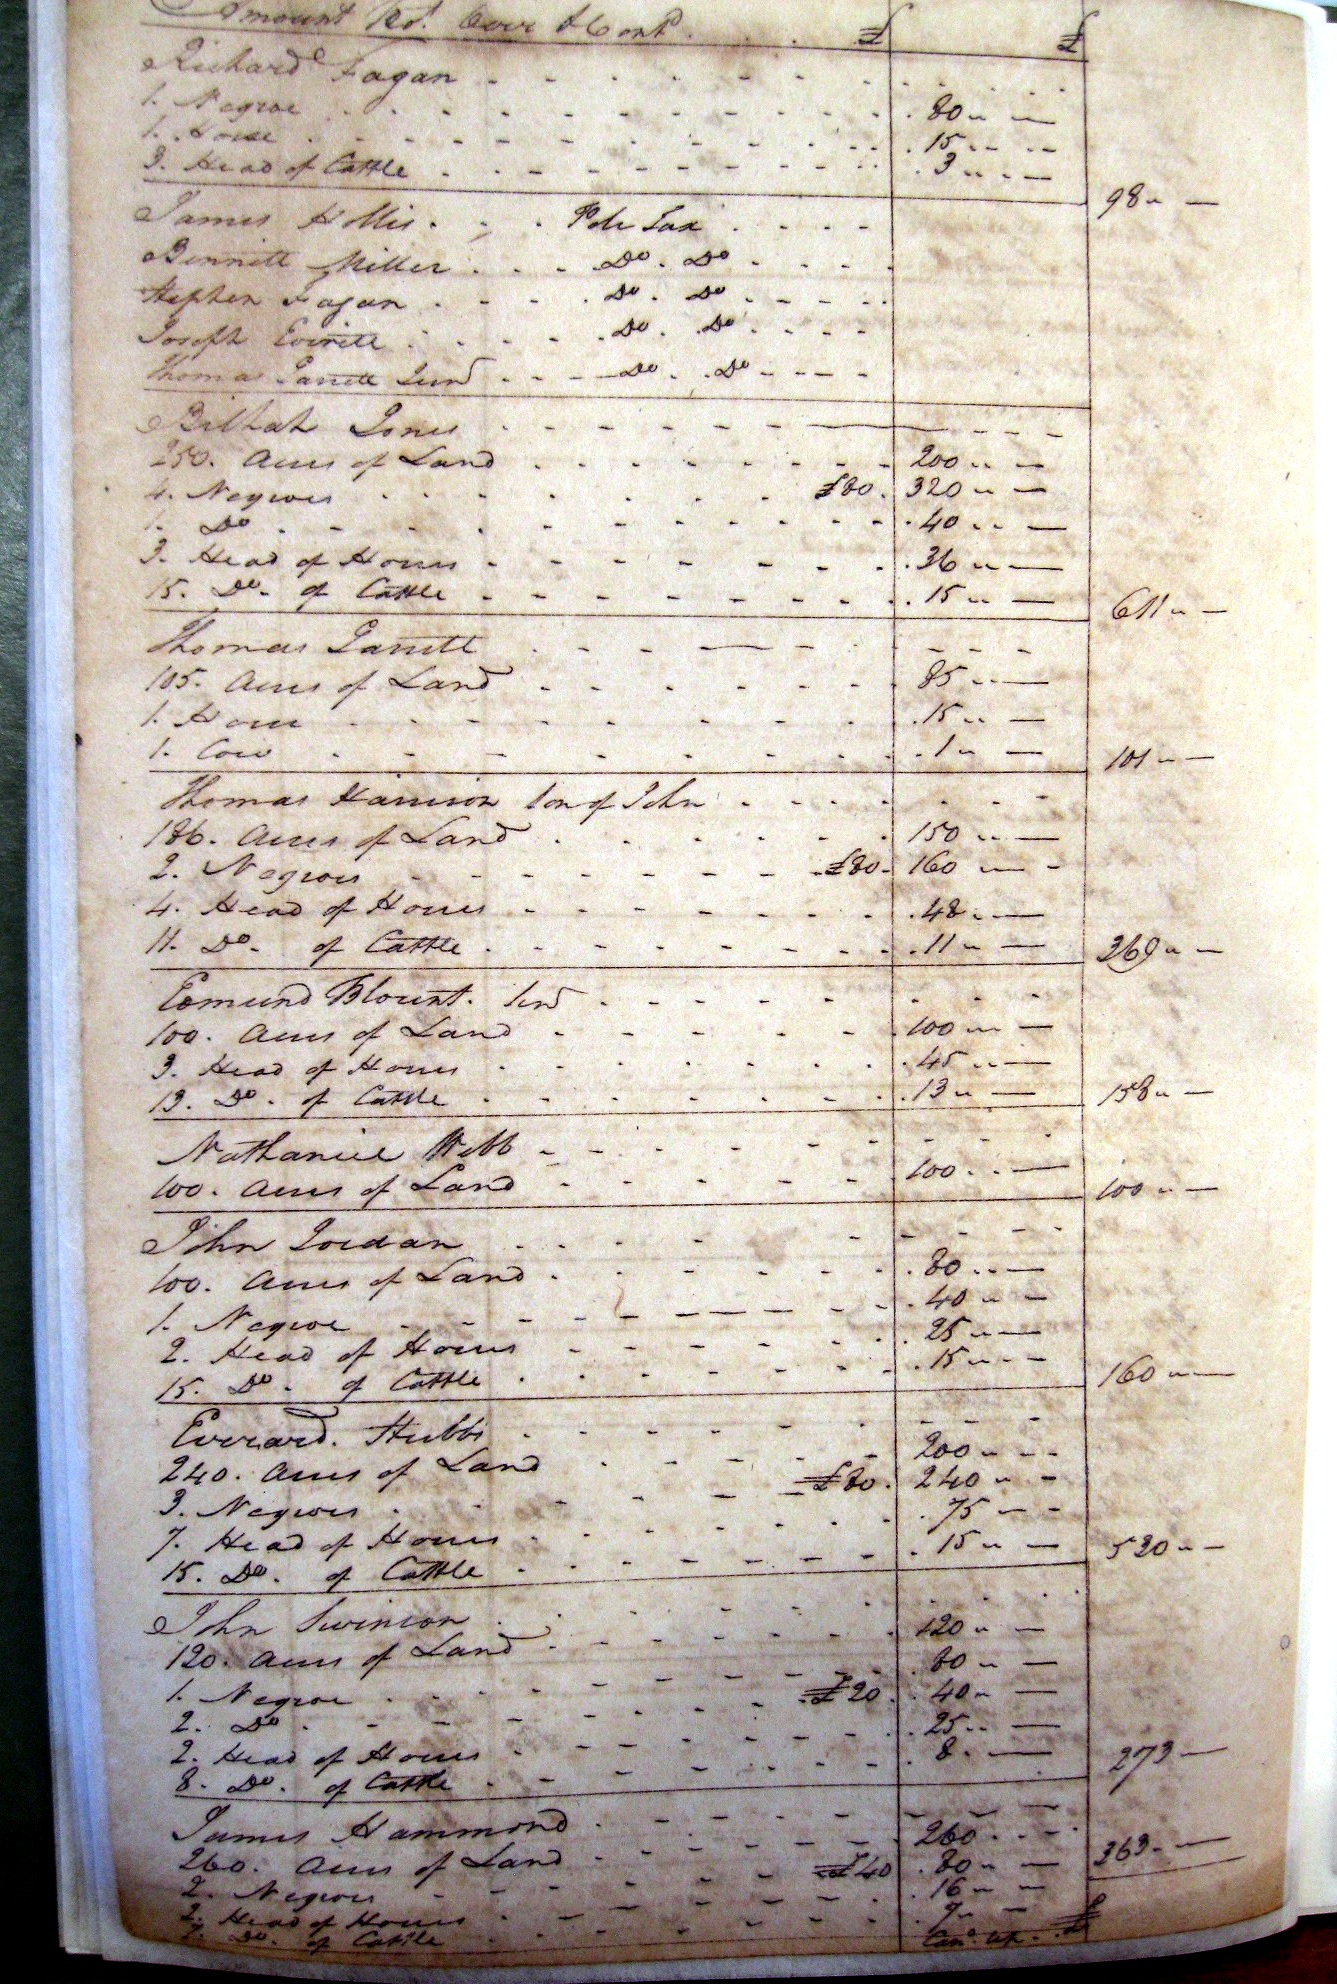 Amount Bd. Over & Cont. £ £
Richard Fagan
1. Negroe 80 " —
1. Horse 15 " —
3. Head of Cattle 3 " — 98 " —
James Hollis Pole Tax
Bennett Miller Do. Do
Stephen Fagan Do. Do
Joseph Everitt Do. Do
Thomas Garrett Junr Do. Do
Bilhah Jones
250. Acres of Land 200 " —
4. Negroes £80. 320 " —
1. Do 40 " —
3. Head of Horses 36 " —
15. Do. of Cattle 15 " — 611 " —
Thomas Garrett
105. Acres of Land 85 " —
1. Horse 15 " —
1. Cow 1 " — 101 " —
Thomas Harrison Son of John
186. Acres of Land 150 " —
2. Negroes £80. 160 " —
4. Head of Horses 48 " —
11. Do. of Cattle 11 " — 369 " —
Edmund Blount. Senr
100. Acres of Land 100 " —
3. Head of Horses 45 " —
13. Do. of Cattle 13 " — 158 " —
Nathaniel Webb
100. Acres of Land 100 " — 100 " —
John Jordan
100. Acres of Land 80 " —
1. Negroe 40 " —
2. Head of Horses 25 " —
15. Do. of Cattle 15 " — 160 " —
Everard. Stubbs
240. Acres of Land 200 " —
3. Negroes £80. 240 " —
7. Head of Horses 75 " —
15. Do. of Cattle 15 " — 530 " —
John Swinson
120. Acres of Land 120 " —
1. Negroe 80 " —
2. Do £20. 40 " —
2. Head of Horses 25 " —
8. Do. of Cattle 8 " — 273 —
James Hammond
260. Acres of Land 260 " —
2. Negroes £40 80 " —
2. Head of Horses 16 " —
7. Do. of Cattle 7 " — 363 " —
Card. up. £